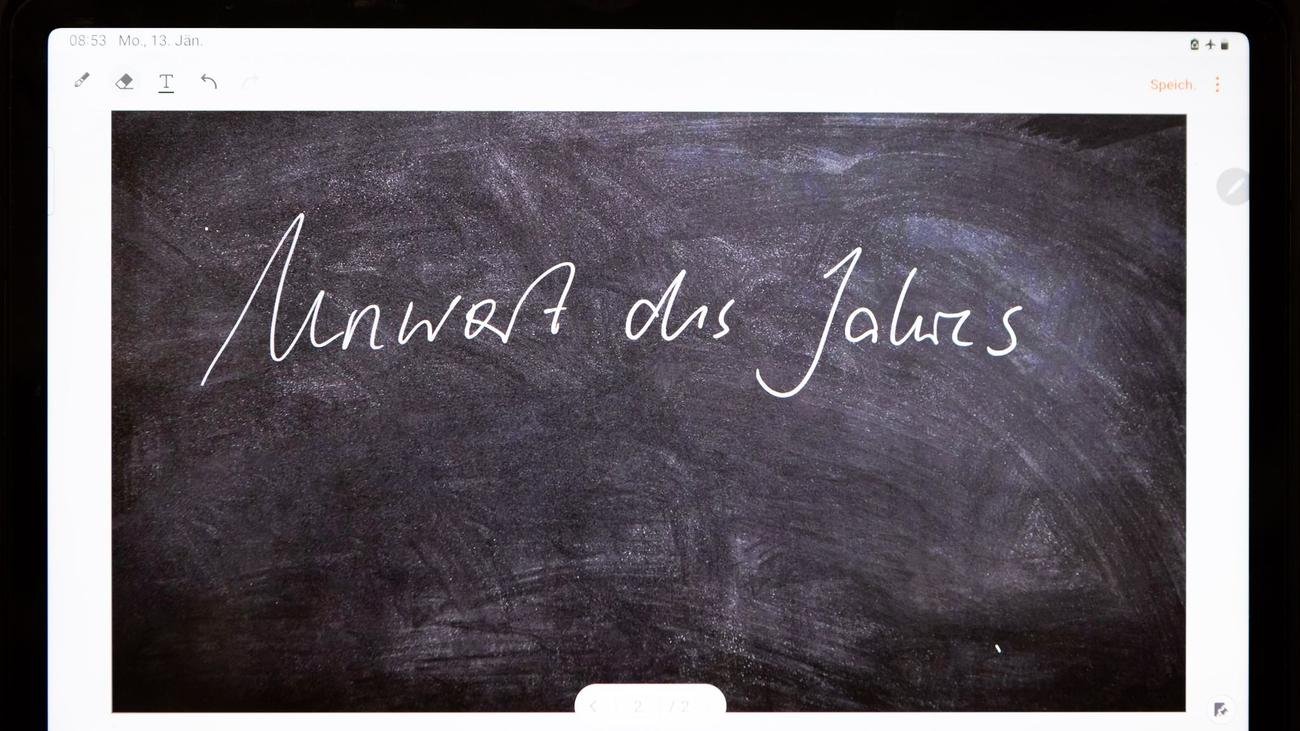 08:53 Mo., 13. Jän.
T
Speich.
Unwort des Jahres
2 / 2